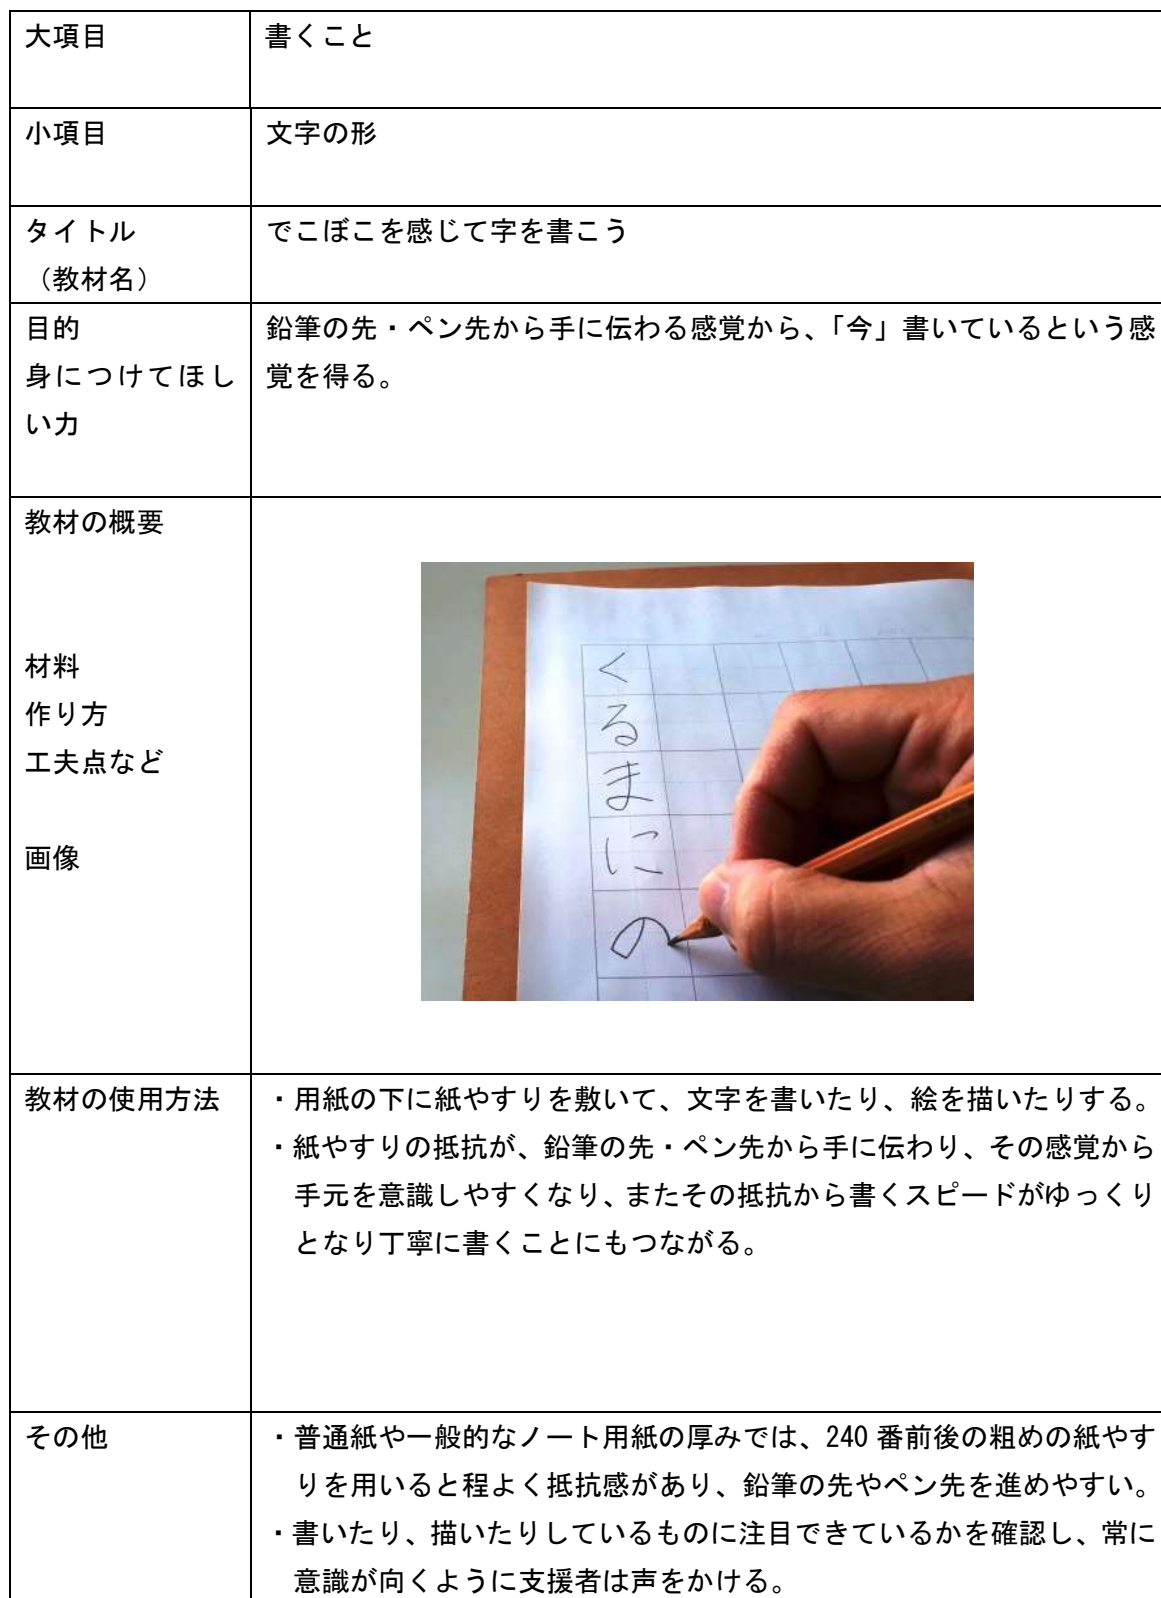 大項目
書くこと
小項目
文字の形
タイトル
（教材名）
でこぼこを感じて字を書こう
目的
身につけてほし
い力
鉛筆の先・ペン先から手に伝わる感覚から、「今」書いているという感
覚を得る。
教材の概要
材料
作り方
工夫点など
画像
く
る
ま
に
の
教材の使用方法
・用紙の下に紙やすりを敷いて、文字を書いたり、絵を描いたりする。
・紙やすりの抵抗が、鉛筆の先・ペン先から手に伝わり、その感覚から
手元を意識しやすくなり、またその抵抗から書くスピードがゆっくり
となり丁寧に書くことにもつながる。
その他
・普通紙や一般的なノート用紙の厚みでは、240 番前後の粗めの紙やす
りを用いると程よく抵抗感があり、鉛筆の先やペン先を進めやすい。
・書いたり、描いたりしているものに注目できているかを確認し、常に
意識が向くように支援者は声をかける。